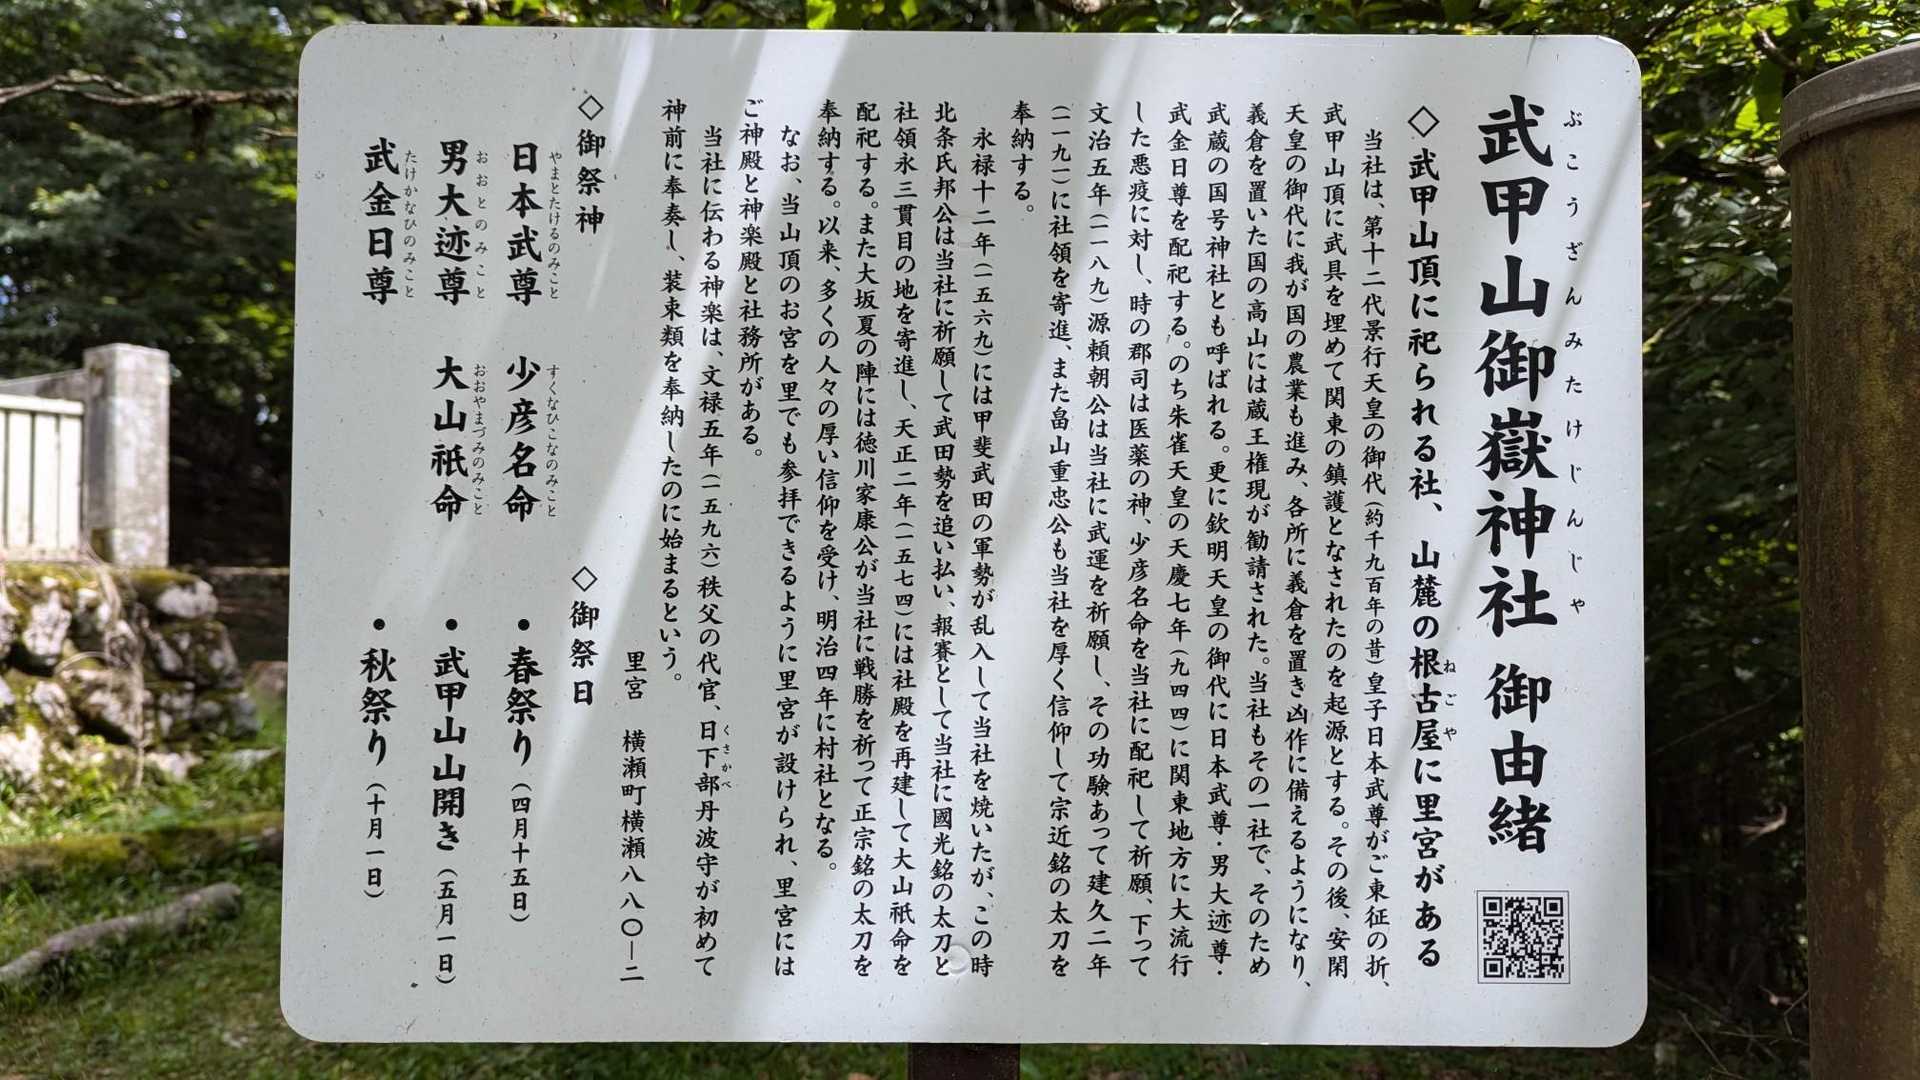 武甲山御嶽神社 御由緒
ぶこうざんみたけじんじゃ
◇武甲山頂に祀られる社、山麓の根古屋に里宮がある
ねごや
当社は、第十二代景行天皇の御代(約千九百年の昔)皇子日本武尊がご東征の折、
武甲山頂に武具を埋めて関東の鎮護となされたのを起源とする。その後、安閑
天皇の御代に我が国の農業も進み、各所に義倉を置き凶作に備えるようになり、
義倉を置いた国の高山には蔵王権現が勧請された。当社もその一社で、そのため
武蔵の国号神社とも呼ばれる。更に欽明天皇の御代に日本武尊・男大迹尊・
武金日尊を配祀する。のち朱雀天皇の天慶七年(九四四)に関東地方に大流行
した悪疫に対し、時の郡司は医薬の神、少彦名命を当社に配祀して祈願、下って
文治五年(一一八九)源頼朝公は当社に武運を祈願し、その功験あって建久二年
(一一九一)に社領を寄進、また畠山重忠公も当社を厚く信仰して宗近銘の太刀を
奉納する。
永禄十二年(一五六九)には甲斐武田の軍勢が乱入して当社を焼いたが、この時
北条氏邦公は当社に祈願して武田勢を追い払い、報賽として当社に國光銘の太刀と
社領永三貫目の地を寄進し、天正二年(一五七四)には社殿を再建して大山祇命を
配祀する。また大坂夏の陣には徳川家康公が当社に戦勝を祈って正宗銘の太刀を
奉納する。以来、多くの人々の厚い信仰を受け、明治四年に村社となる。
なお、当山頂のお宮を里でも参拝できるように里宮が設けられ、里宮には
ご神殿と神楽殿と社務所がある。
当社に伝わる神楽は、文禄五年(一五九六)秩父の代官、日下部丹波守が初めて
くさかべ
神前に奉奏し、装束類を奉納したのに始まるという。
里宮 横瀬町横瀬八八〇―二
◇御祭神
日本武尊 少彦名命
やまとたけるのみこと すくなひこなのみこと
男大迹尊 大山祇命
おおとのみこと おおやまづみのみこと
武金日尊
たけかなひのみこと
◇御祭日
・春祭り(四月十五日)
・武甲山山開き(五月一日)
・秋祭り(十月一日)